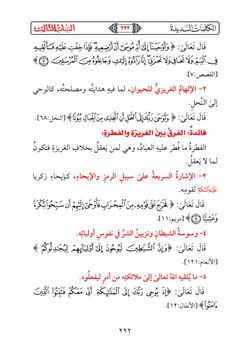 الكلمات السديدة
٢٢٢
السنة الثالثة
قَالَ تَعَالَىٰ: ﴿ وَأَوْحَيْنَا إِلَىٰ أُمِّ مُوسَىٰ أَنْ أَرْضِعِيهِ فَإِذَا خِفْتِ عَلَيْهِ فَأَلْقِيهِ
فِي الْيَمِّ وَلَا تَخَافِي وَلَا تَحْزَنِي إِنَّا رَادُّوهُ إِلَيْكِ وَجَاعِلُوهُ مِنَ الْمُرْسَلِينَ ﴾
[القصص:٧].
٢- الإلهامُ الغريزيُّ للحيوانِ، لما فيهِ هدايتُه ومصلحتُه، كالوحي
إلى النَّحلِ.
قَالَ تَعَالَىٰ: ﴿ وَأَوْحَىٰ رَبُّكَ إِلَى النَّحْلِ أَنِ اتَّخِذِي مِنَ الْجِبَالِ بُيُوتًا ﴾ [النحل:٦٨].
فائدة: الفرقُ بينَ الغريزةِ والفطرةِ:
الفطرةُ ما فُطرَ عليهِ العبادُ، وهي لمن يَعقلُ بخلافِ الغريزةِ فتكونُ
لما لا يَعقلُ.
٣- الإشارةُ السريعةُ علىٰ سبيلِ الرمزِ والإيحاءِ، كإيحاءِ زكريا
عَلَيْهِ السَّلَامُ لقومِه.
قَالَ تَعَالَىٰ: ﴿ فَخَرَجَ عَلَىٰ قَوْمِهِ مِنَ الْمِحْرَابِ فَأَوْحَىٰ إِلَيْهِمْ أَن سَبِّحُوا بُكْرَةً
وَعَشِيًّا ﴾ [مريم:١١].
٤- وسوسةُ الشيطانِ وتزيينُ الشرِّ في نفوسِ أوليائِه.
قَالَ تَعَالَىٰ: ﴿ وَإِنَّ الشَّيَاطِينَ لَيُوحُونَ إِلَىٰ أَوْلِيَائِهِمْ لِيُجَادِلُوكُمْ ﴾
[الأنعام:١٢١].
٥- ما يُلقيهِ اللهُ تعالىٰ إلىٰ ملائكتِه من أمرٍ ليفعلُوه.
قَالَ تَعَالَىٰ: ﴿ إِذْ يُوحِي رَبُّكَ إِلَى الْمَلَائِكَةِ أَنِّي مَعَكُمْ فَثَبِّتُوا الَّذِينَ
آمَنُوا ﴾ [الأنفال:١٢].
٢٢٢